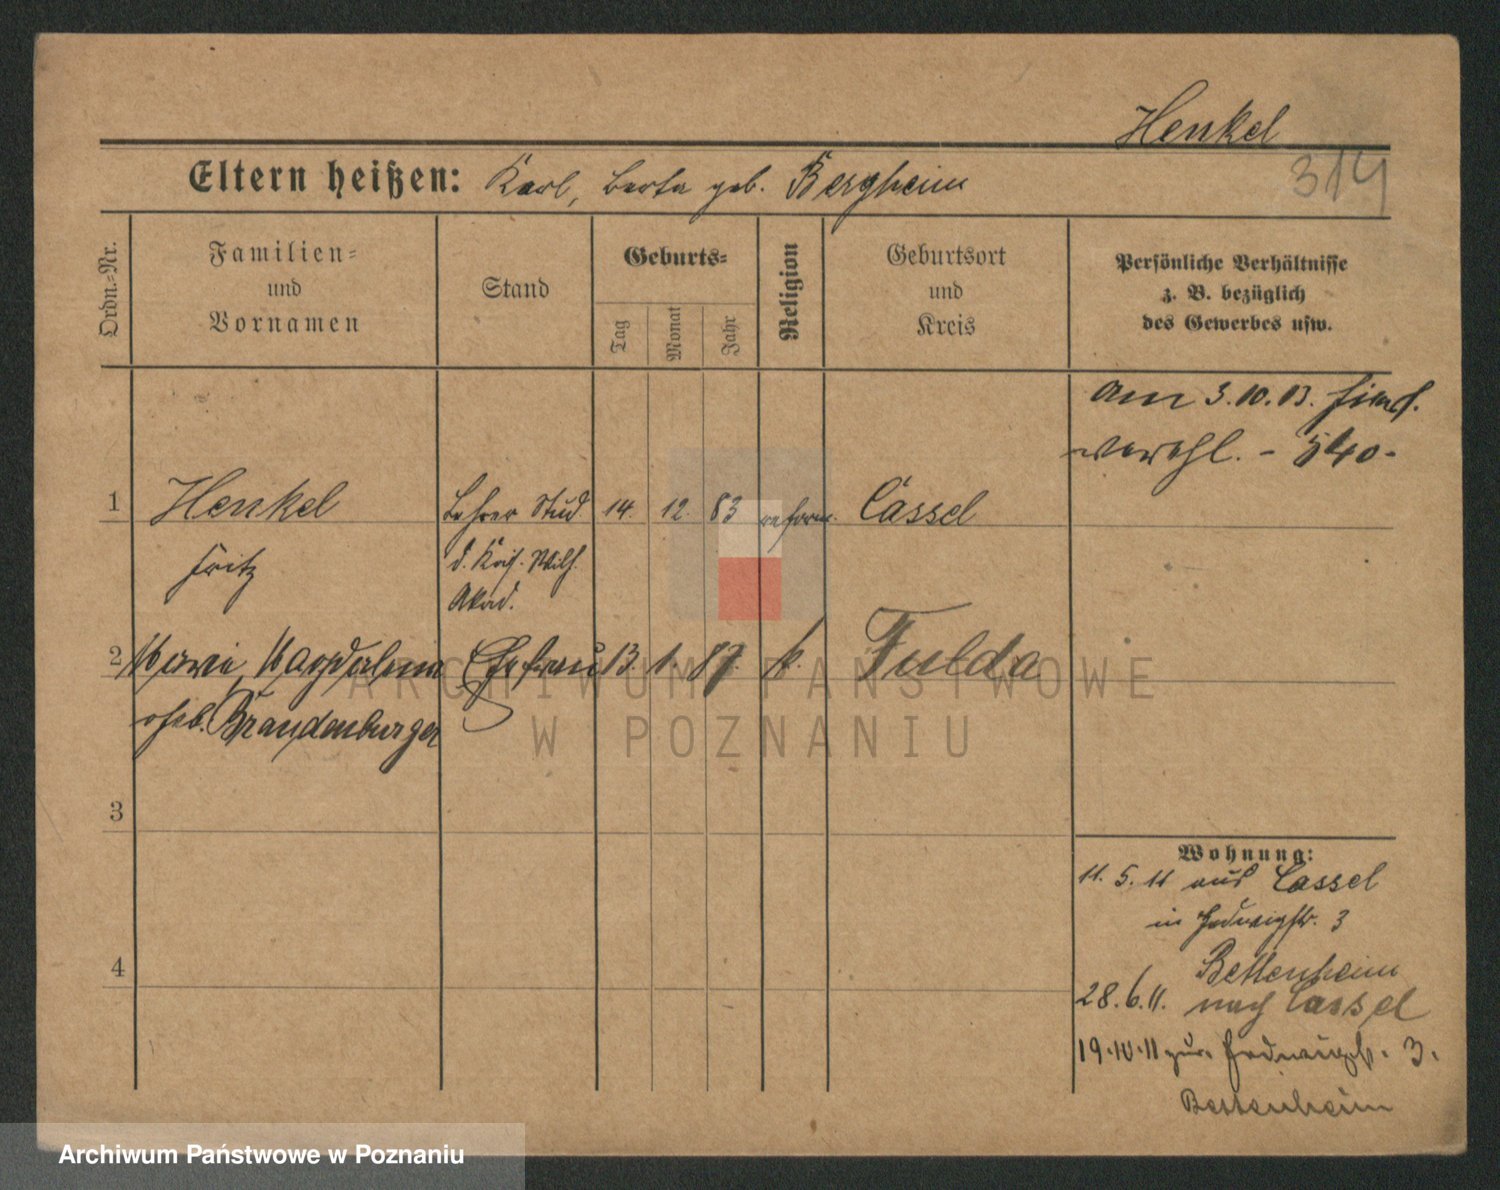 Henkel
314
Eltern heißen: Karl, Berta geb. Bergheim
Ordn.-Nr.
Familien-
und
Vornamen
Stand
Geburts-
Tag
Monat
Jahr
Religion
Geburtsort
und
Kreis
Persönliche Verhältnisse
z. B. bezüglich
des Gewerbes usw.
am 3.10.13.
verehl. - 540-
1 Henkel Lehrer Stud. 14. 12. 83 reform. Cassel
Fritz d. Kais. Wilh.
Akad.
2 Maria Magdalena Ehefrau 13. 1. 87. k. Fulda
geb. Brandenburger
3
4
Wohnung:
11. 5. 11 aus Cassel
in Hedwigstr. 3
Bettenheim
28.6.11. nach Cassel
19.10.11 zur. Hedwigstr. 3.
Bettenheim
ARCHIWUM PAŃSTWOWE
W POZNANIU
Archiwum Państwowe w Poznaniu